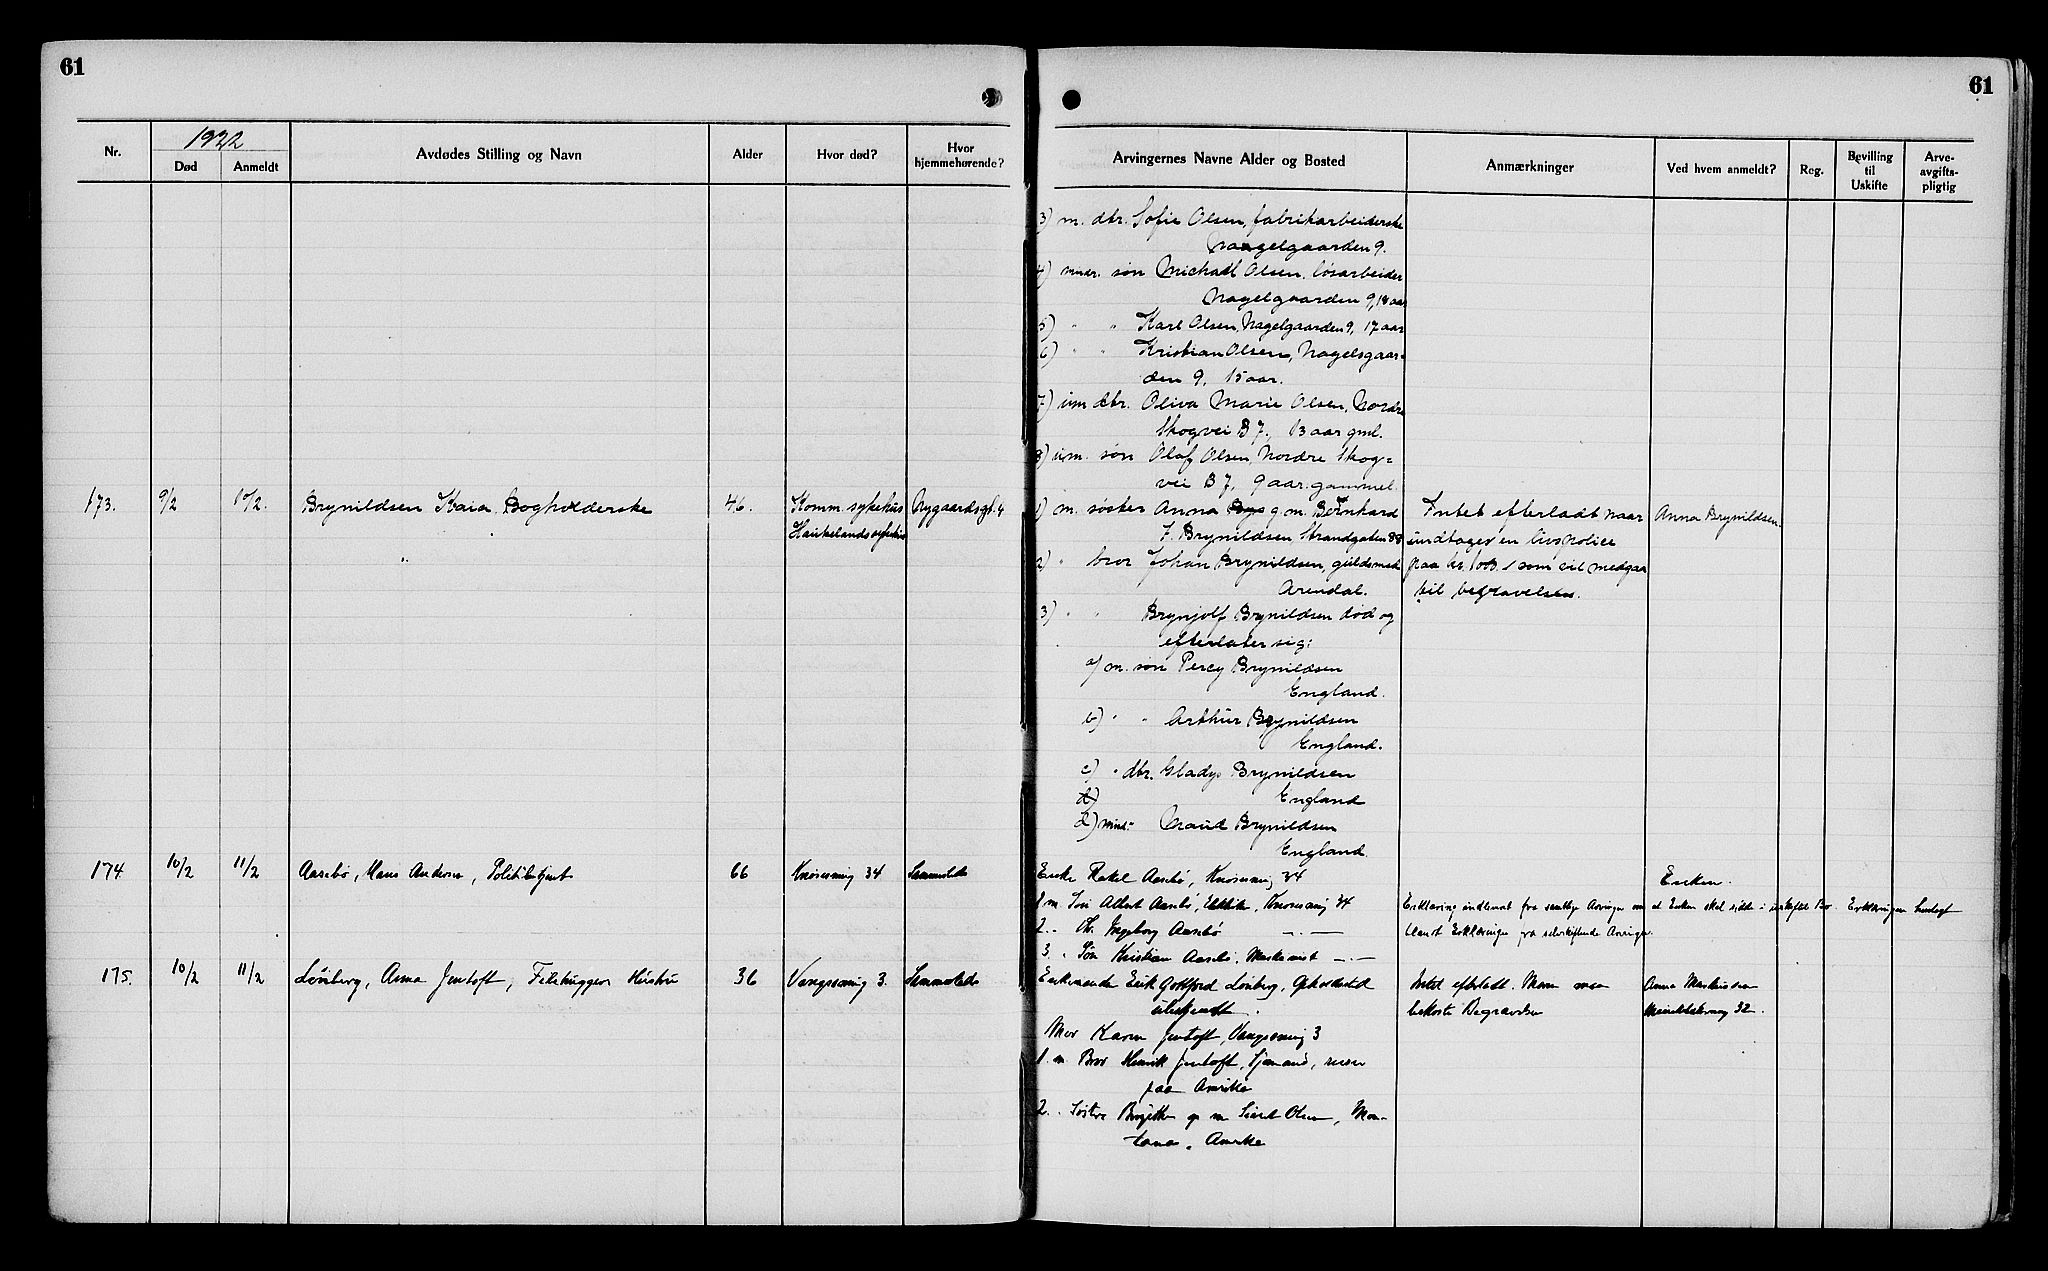 61
61
Nr.
1922
Død
Anmeldt
Avdødes Stilling og Navn
Alder
Hvor død?
Hvor hjemmehørende?
Arvingernes Navne Alder og Bosted
Anmærkninger
Ved hvem anmeldt?
Reg.
Bevilling til Uskifte
Arve-avgifts-pligtig
3) m. dtr. Sofie Olsen, fabrikarbeiderske
Nagelgaarden 9.
4) mindr. søn Michael Olsen, løsarbeider
Nagelgaarden 9, 18 aar
5) " " Karl Olsen, Nagelgaarden 9, 17 aar
6) " " Kristian Olsen, Nagelsgaar-
den 9, 15 aar.
7) um dtr. Oliva Marie Olsen, Nordre
Skogvei B 7, 13 aar gml.
8) um. søn Olaf Olsen, Nordre Skog=
vei B 7, 9 aar gammel.
173. 9/2 10/2. Brynildsen Kaia Bogholderske 46. Komm. sykehus Nygaardsgt. 4 1) m. søster Anna g. m. Bernhard Intet efterladt naar Anna Brynildsen.
Haukelandssykehus J. Brynildsen Strandgaten 88 undtages en livspolice
2) " bror Johan Brynildsen, guldsmed paa kr. 1000. som vil medgaa
Arendal. til begravelsen.
3) " " Brynjolf Brynildsen død og
efterlater sig:
a) m. søn Percy Brynildsen
England.
b) " " Arthur Brynildsen
England.
c) " dtr. Gladys Brynildsen
d) England
d) mind. " Maud Brynildsen
England.
174. 10/2 11/2 Aarsbø, Hans Andersen, Politibetjent 66 34 Sammesteds Enke Rakel Aarsbø, 34 Enken.
1 m. Søn Albert Aarsbø, 34 Erklæring indlevert fra samtlige Arvinger om at Enken skal sidde i uskiftet Bo Erklæringen henlagt
2. " Dtr. Ingeborg Aarsbø — " — blandt Erklæringer fra selvskiftende Arvinger.
3. " Søn Kristian Aarsbø, Maskinist — " —
175. 10/2 11/2 Lønberg, Anna Jentoft, Filehuggers Hustru 36 3. Sammesteds Enkemanden Erik Gottfred Lønberg, Opholdssted Intet efterladt. Mann maa Anna
ubekjendt. bekoste Begravelsen 32.
Mor Karen Jentoft, 3
1. m. Bror Henrik Jentoft, Sjømand, reiser
paa Amerika
2. " Søster Birgitte g m Olsen, Mon-
tana, Amerika